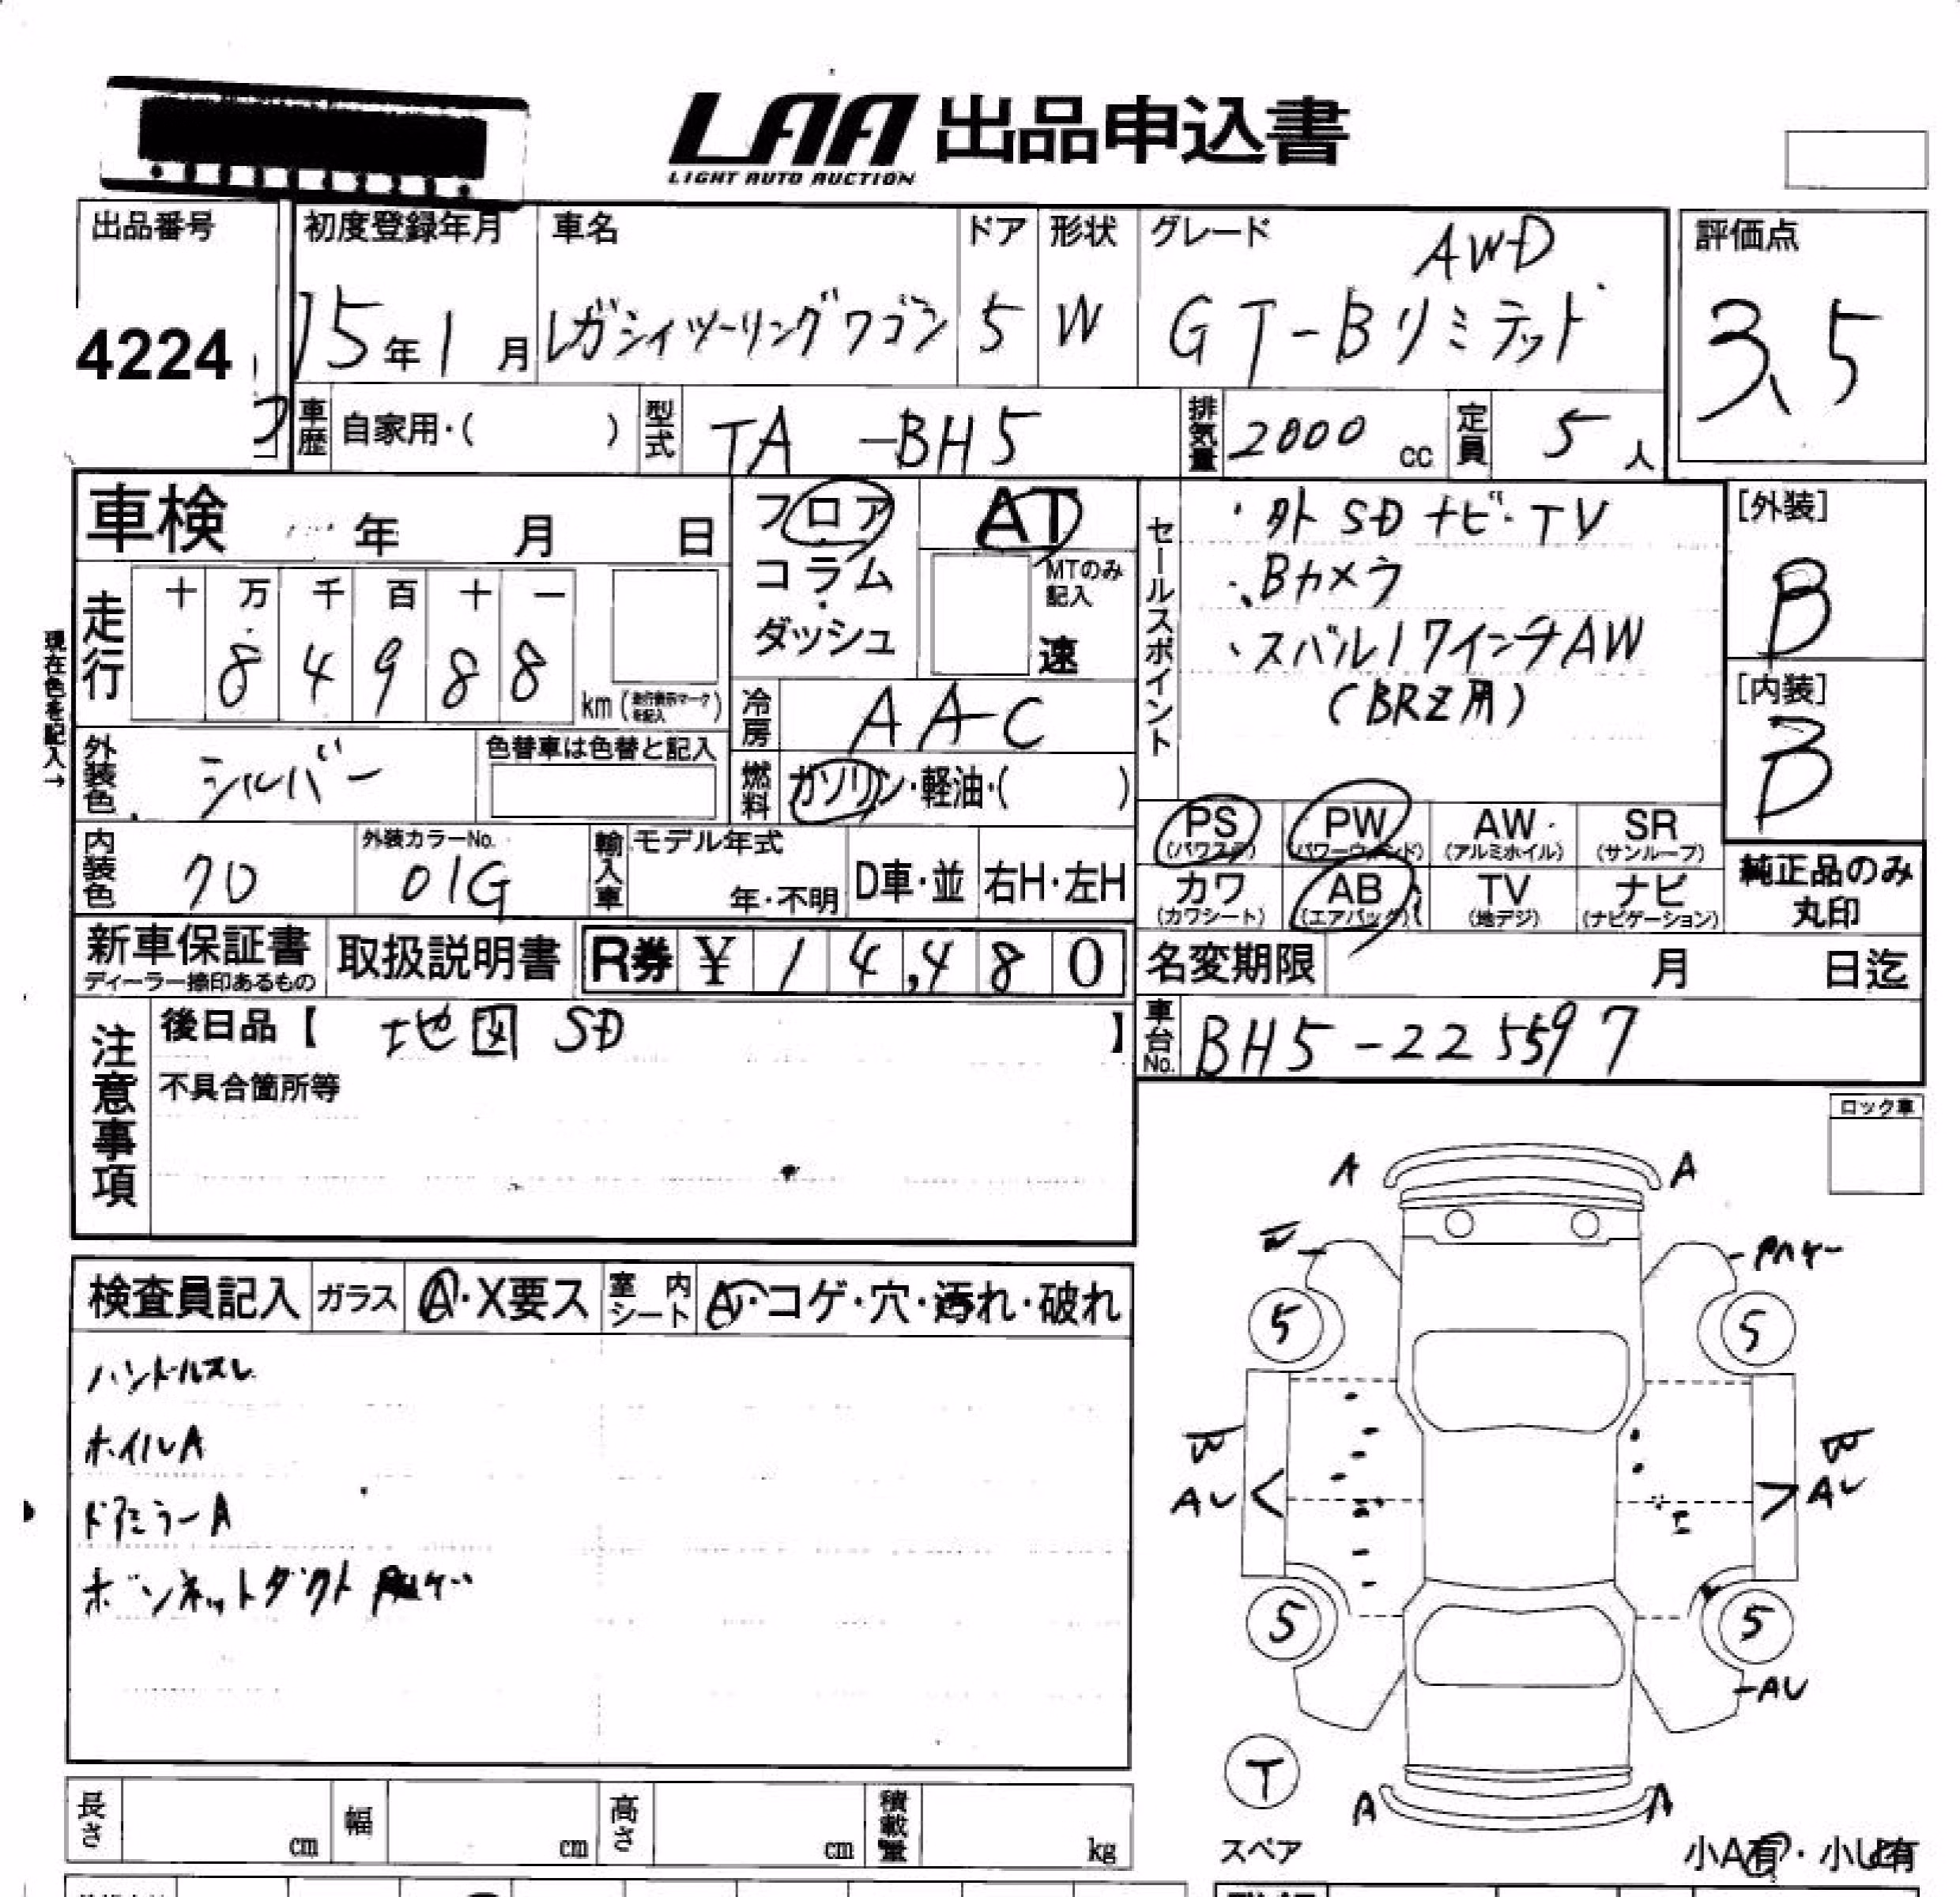 LAA 出品申込書
LIGHT AUTO AUCTION
出品番号 初度登録年月 車名 ドア 形状 グレード AWD 評価点
4224 15年1月 レガシィツーリングワゴン 5 W GT-Bリミテッド 3.5
車歴 自家用・( ) 型式 TA-BH5 排気量 2000 cc 定員 5 人
車検 年 月 日 フロア AT セールスポイント ・外SDナビ・TV [外装]
コラム MTのみ記入 ・Bカメラ B
走行 十 万 千 百 十 一
8 4 9 8 8 km (走行表示マークを記入)
ダッシュ 速 ・スバル17インチAW
(BRZ用) [内装]
B
現在色を記入→
冷房 AAC
外装色 シルバー 色替車は色替と記入 燃料 ガソリン・軽油・( )
PS (パワステ) PW (パワーウィンド) AW (アルミホイル) SR (サンルーフ)
内装色 クロ 外装カラーNo. 01G 輸入車 モデル年式 年・不明 D車・並 右H・左H
カワ (カワシート) AB (エアバッグ) TV (地デジ) ナビ (ナビゲーション) 純正品のみ丸印
新車保証書 ディーラー捺印あるもの 取扱説明書 R券 ¥ 14,480 名変期限 月 日迄
注意事項 後日品【 地図SD 】 車台No. BH5-225597
不具合箇所等
ロック車
A A
検査員記入 ガラス A・X要ス 室内シート A・コゲ・穴・汚れ・破れ
5 5
ハンドルスレ
ホイルA
AU AU
ドアミラーA
ボンネットダクト
5 5
AU
T
A A
スペア 小A有・小U有
長さ cm 幅 cm 高さ cm 積載量 kg